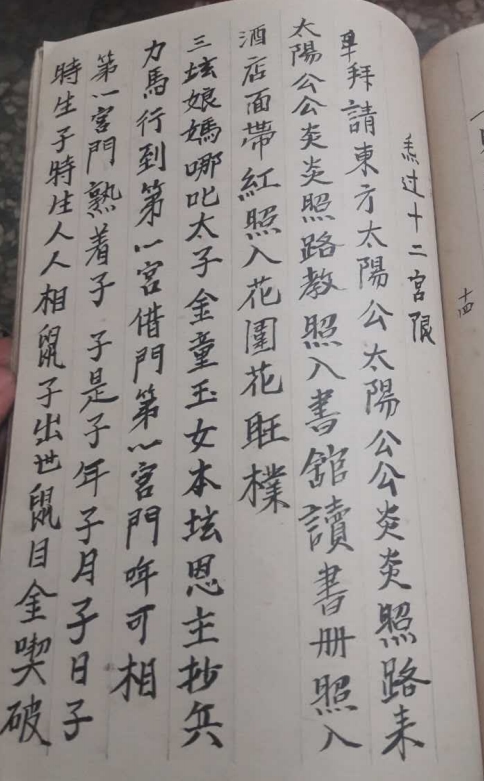 十四
过十二宮限
拜請東方太陽公太陽公公炎炎照路耒
太陽公公炎炎照路教照入書舘讀書册照入
酒店面帶紅照入花園花旺樸
三坛娘媽哪叱太子金童玉女本坛恩主抄兵
力馬行到第一宮借門第一宮門咩可相
第一宮門熟着子 子是子年子月子日子
時生子時生人人相鼠子出世鼠目金喫破